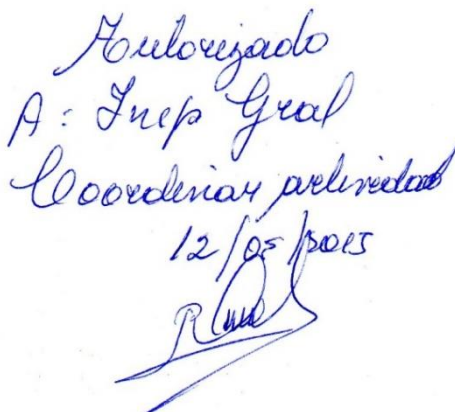 Autorizado
A: Insp Gral
Coordinar actividad
12/05/2015